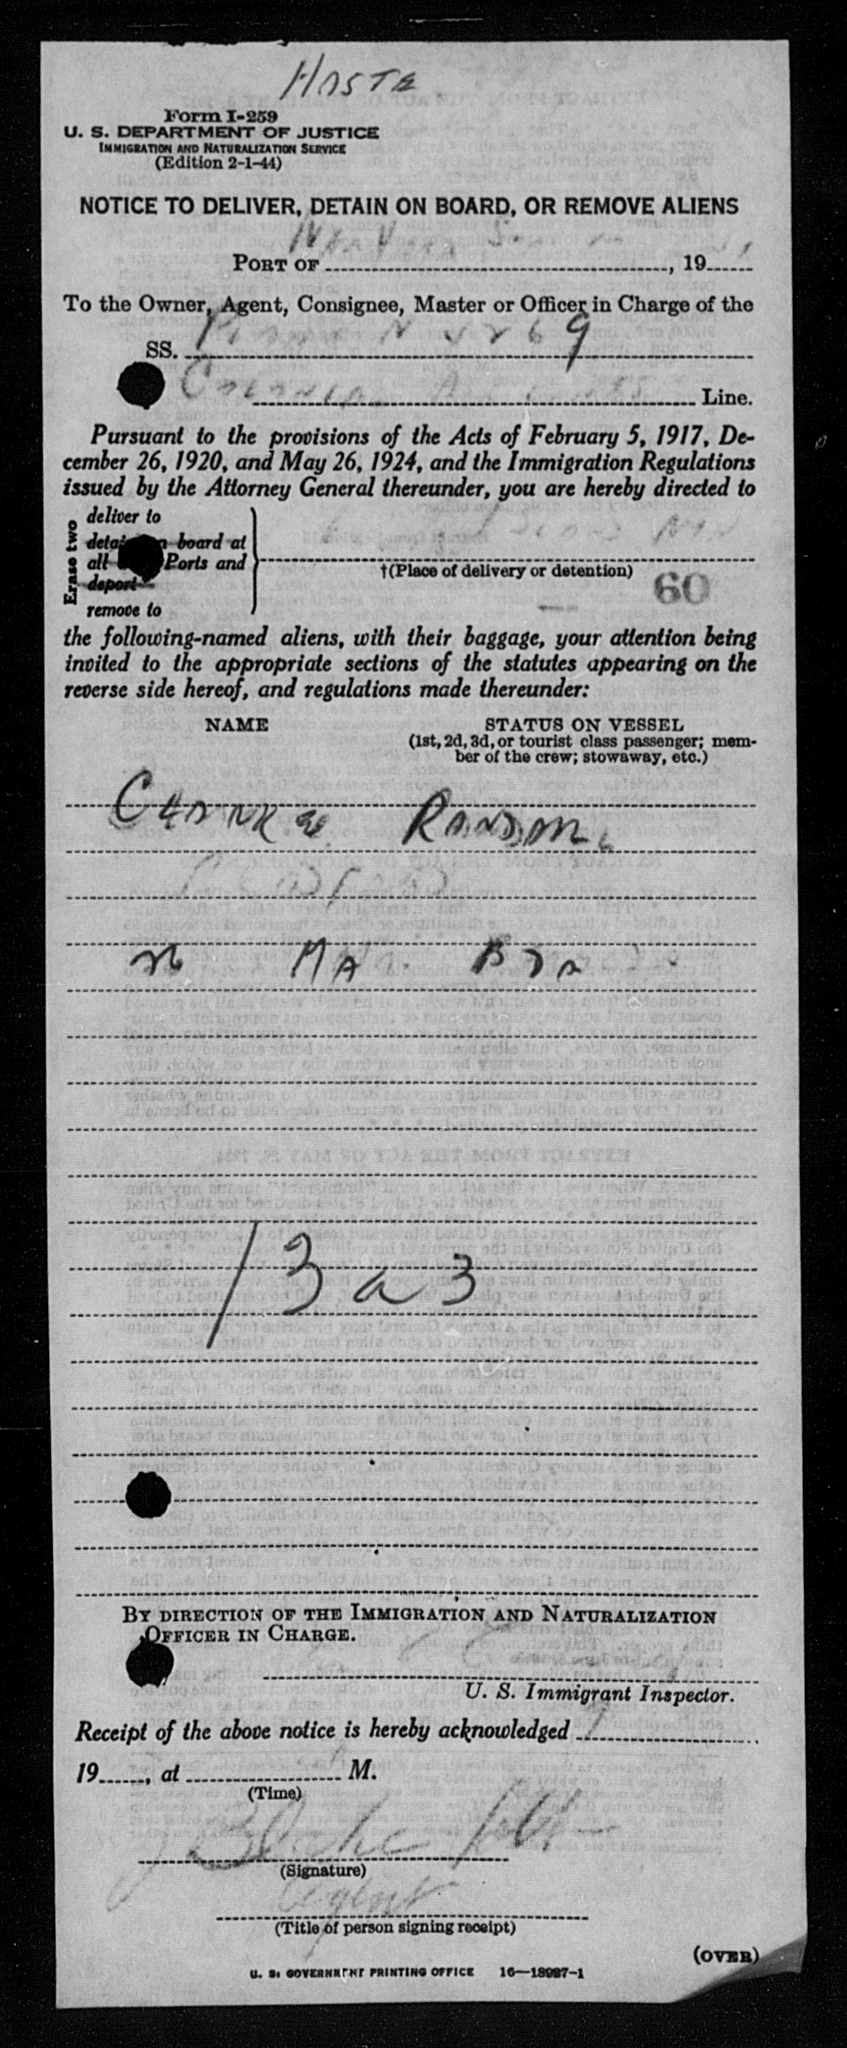 HASTE
Form I-259
U. S. DEPARTMENT OF JUSTICE
IMMIGRATION AND NATURALIZATION SERVICE
(Edition 2-1-44)
NOTICE TO DELIVER, DETAIN ON BOARD, OR REMOVE ALIENS
PORT OF New York, 19
To the Owner, Agent, Consignee, Master or Officer in Charge of the
SS. 9
Colonial Line.
Pursuant to the provisions of the Acts of February 5, 1917, De-
cember 26, 1920, and May 26, 1924, and the Immigration Regulations
issued by the Attorney General thereunder, you are hereby directed to
Erase two
deliver to
detain on board at
all Ports and
deport
remove to
†(Place of delivery or detention)
60
the following-named aliens, with their baggage, your attention being
invited to the appropriate sections of the statutes appearing on the
reverse side hereof, and regulations made thereunder:
NAME STATUS ON VESSEL
(1st, 2d, 3d, or tourist class passenger; mem-
ber of the crew; stowaway, etc.)
MA
13 a 3
BY DIRECTION OF THE IMMIGRATION AND NATURALIZATION
OFFICER IN CHARGE.
U. S. Immigrant Inspector.
Receipt of the above notice is hereby acknowledged
19, at M.
(Time)
(Signature)
Agent
(Title of person signing receipt)
(OVER)
U. S. GOVERNMENT PRINTING OFFICE 16—18987-1